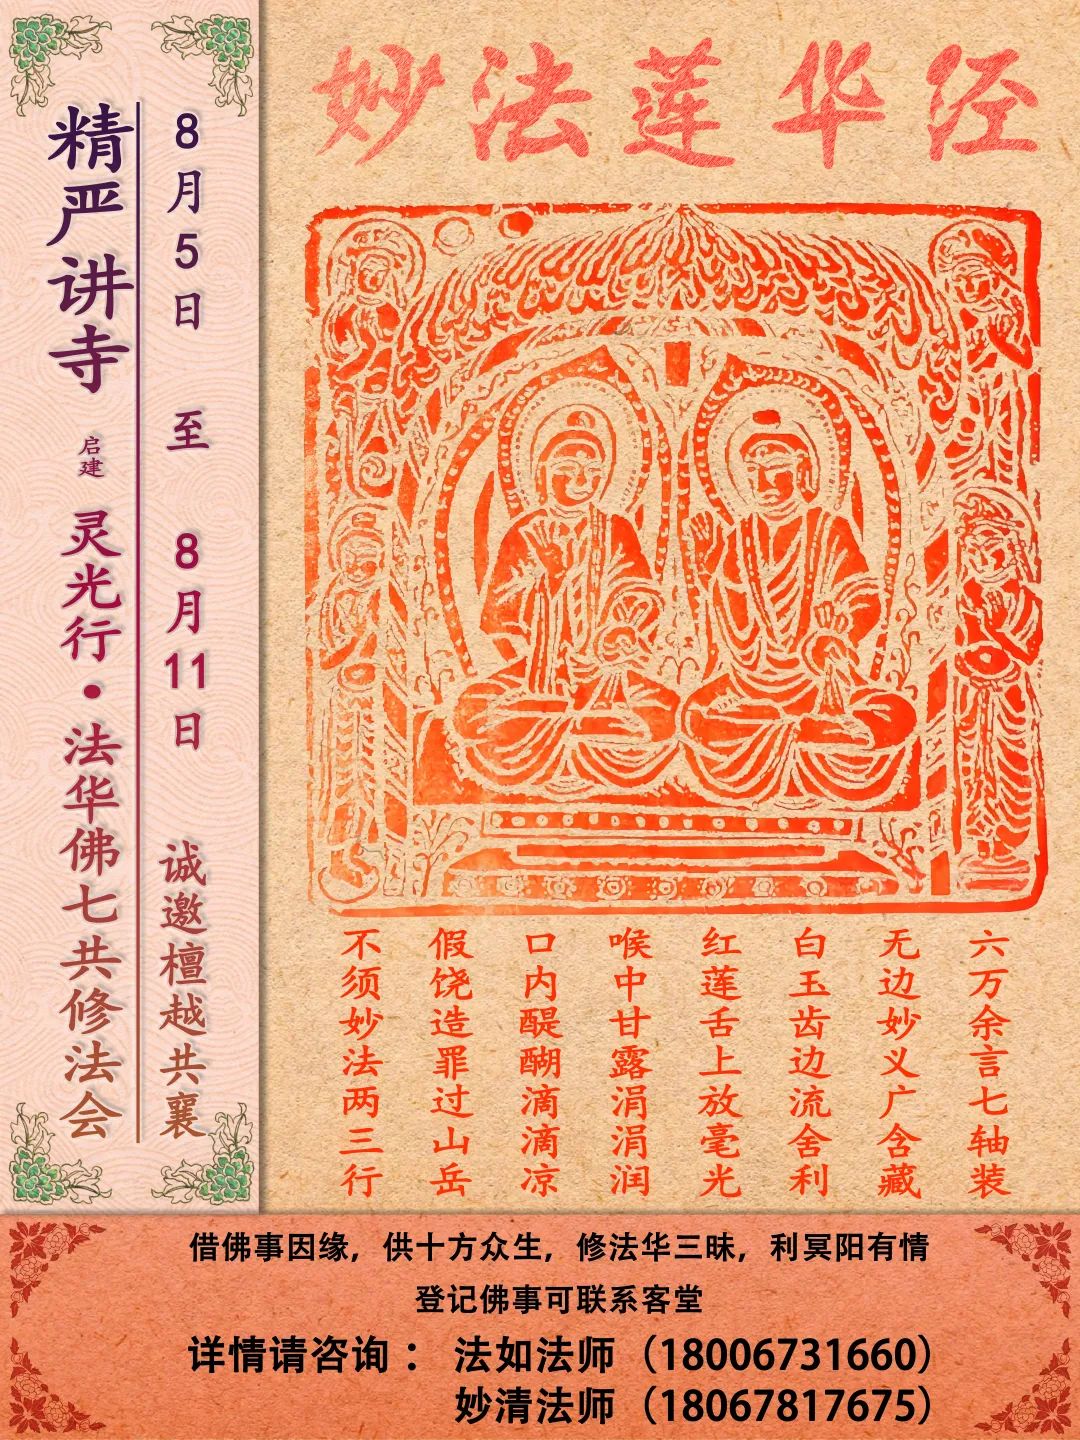 妙法莲华经
精严讲寺 启建 灵光行·法华佛七共修法会
8月5日 至 8月11日 诚邀檀越共襄
六万余言七轴装
无边妙义广含藏
白玉齿边流舍利
红莲舌上放毫光
喉中甘露涓涓润
口内醍醐滴滴凉
假饶造罪过山岳
不须妙法两三行
借佛事因缘，供十方众生，修法华三昧，利冥阳有情
登记佛事可联系客堂
详情请咨询： 法如法师（18006731660）
妙清法师（18067817675）